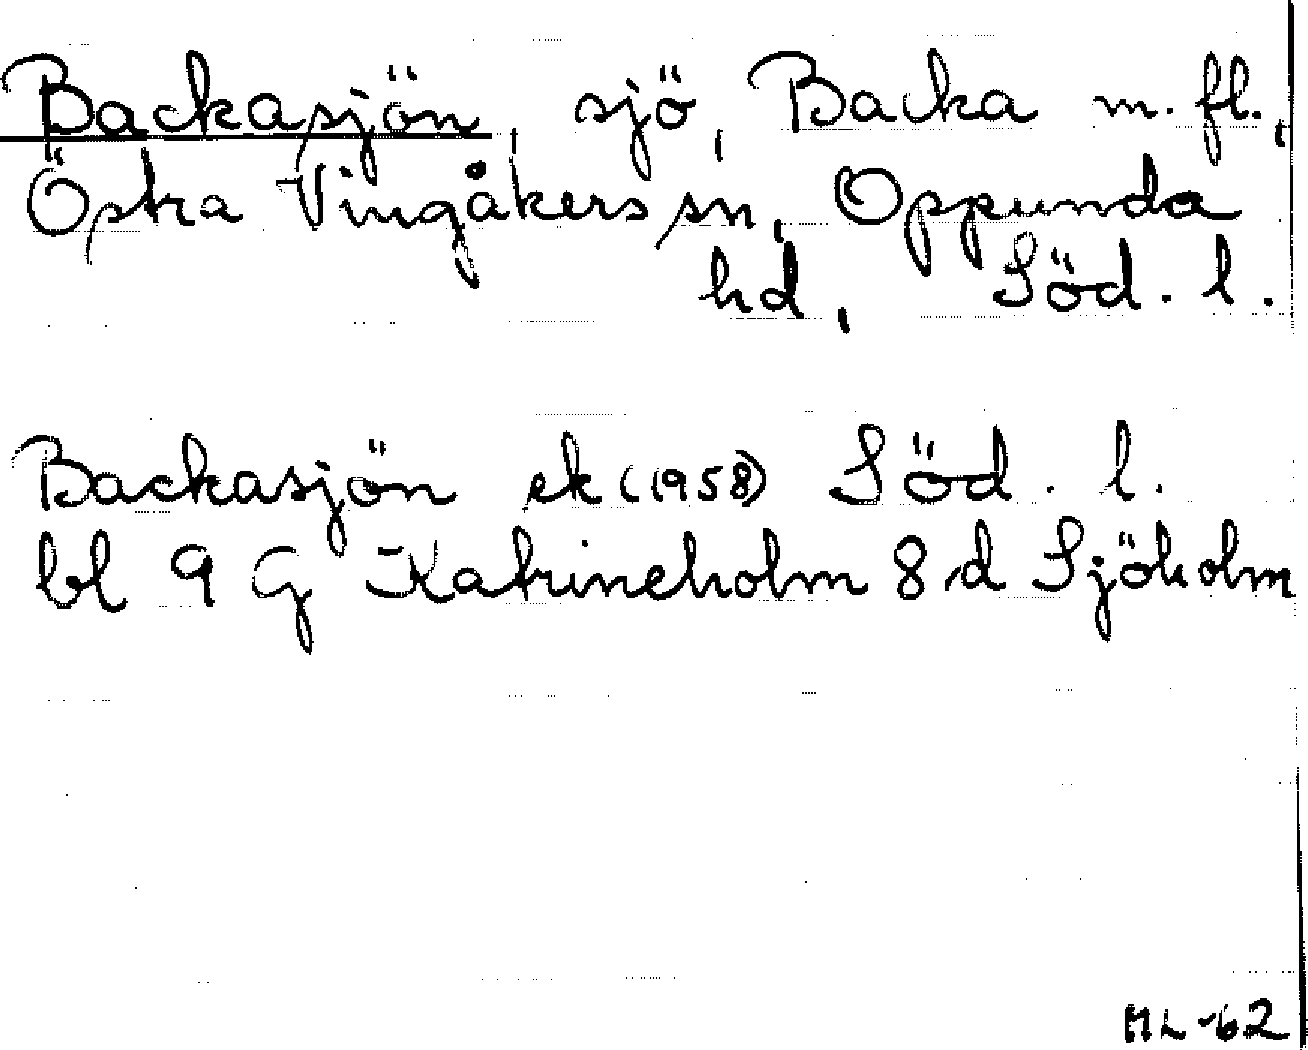 Backasjön, sjö, Backa m. fl.,
Östra Vingåkers sn, Oppunda
hd, Söd. l.
Backasjön ek (1958) Söd. l.
bl 9 G Katrineholm 8 d Sjöholm
ML -62